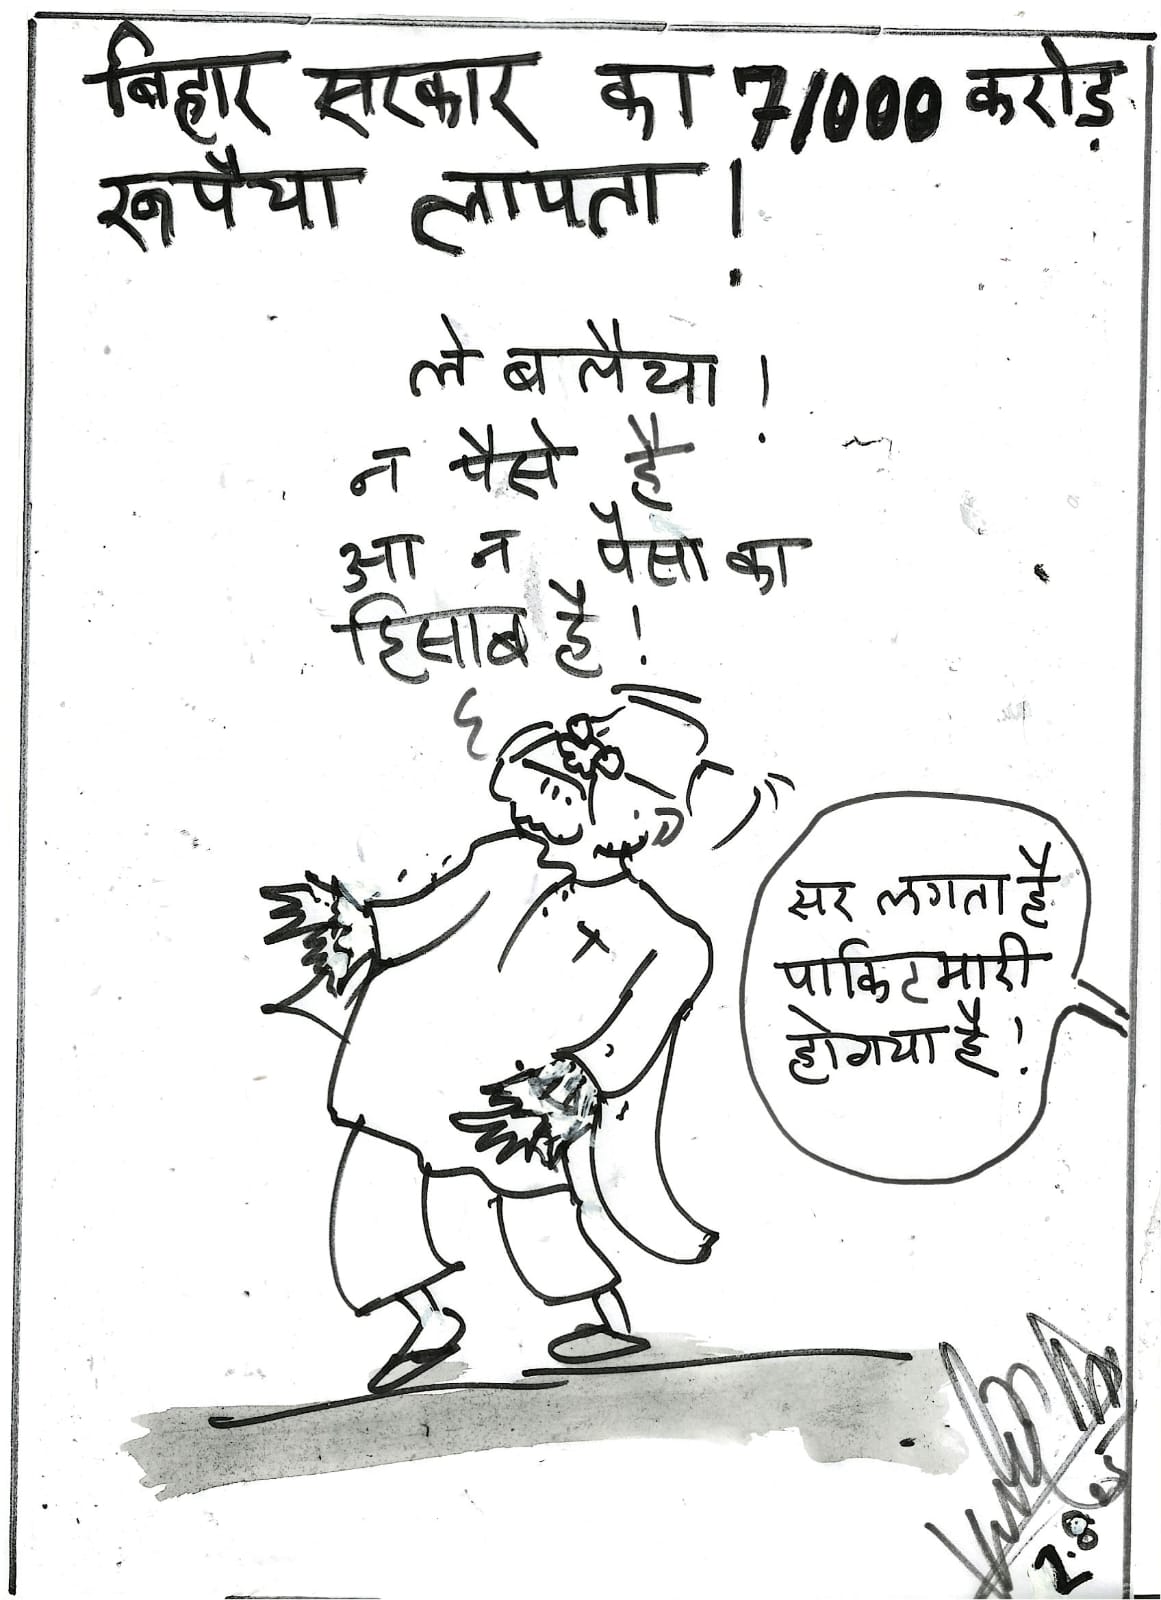 बिहार सरकार का 71000 करोड़
रूपैया लापता !
ले बलैया !
न पैसे है
आ न पैसा का
हिसाब है !
सर लगता है
पाकिटमारी
होगया है !
2.8